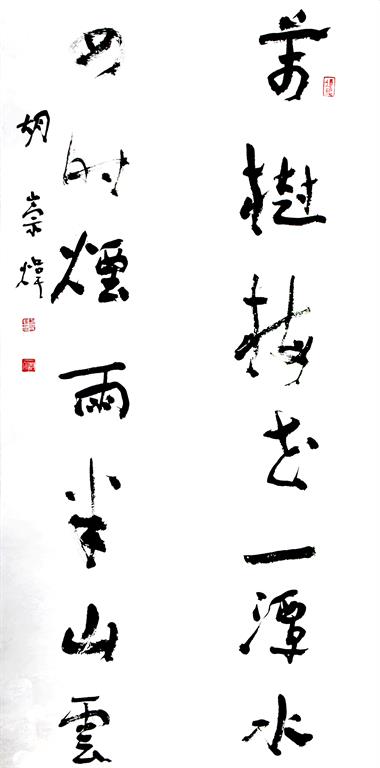 萬樹梅花一潭水
四時煙雨半山雲
胡崇煒